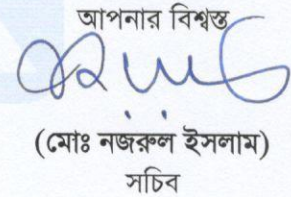 আপনার বিশ্বস্ত
(মোঃ নজরুল ইসলাম)
সচিব